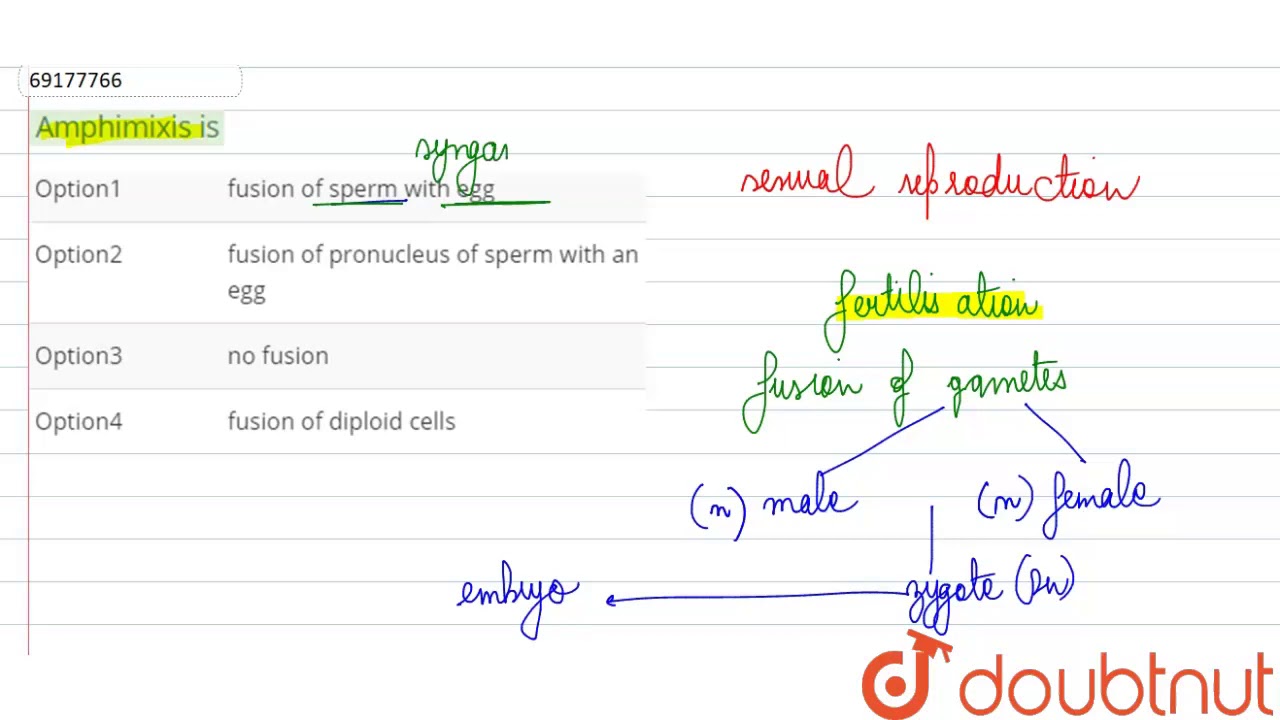 69177766
Amphimixis is
syngam
Option1 fusion of sperm with egg
Option2 fusion of pronucleus of sperm with an
egg
Option3 no fusion
Option4 fusion of diploid cells
sexual reproduction
fertilis ation
fusion of gametes
(n) male (n) female
embryo zygote (2n)
doubtnut